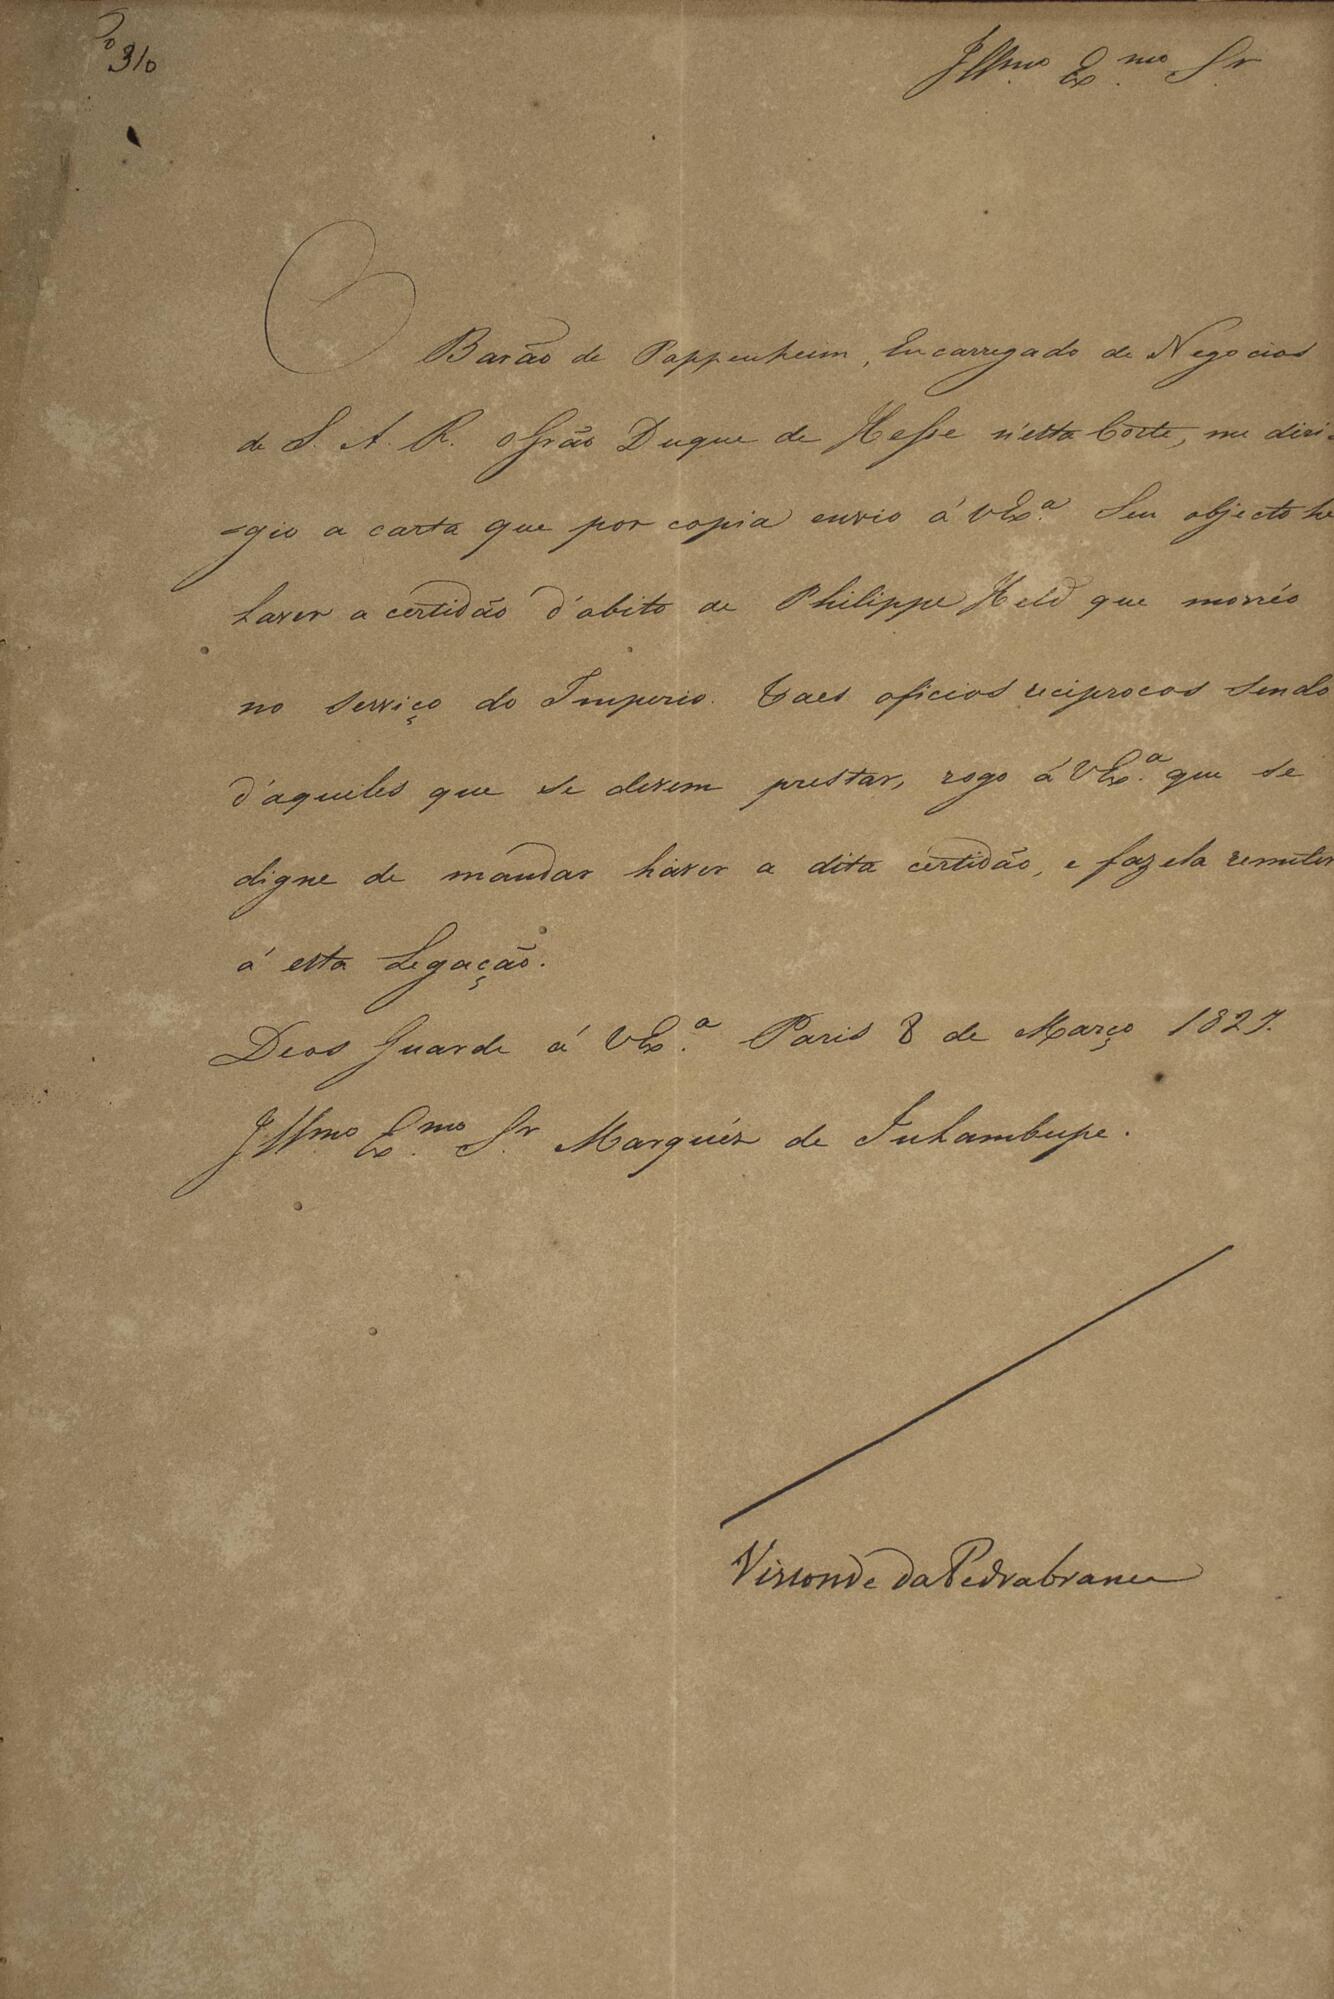 310
Illmo Exmo Sr
O Barão de Pappenheim, Encarregado de Negocios
de S. A. R. o Grão Duque de Hesse n'esta Corte, me diri=
=gio a carta que por copia envio á VExa. Seu objecto he
haver a certidão d'obito de Philippe Held que morréo
no serviço do Imperio. Taes oficios reciprocos sendo
d'aqueles que se devem prestar, rogo á VExa. que se
digne de mandar haver a dita certidão, e fazela remeter
á esta Legação.
Deos Guarde á VExa. Paris 8 de Março 1827.
Illmo Exmo Sr Marquéz de Inhambupe.
Visconde da Pedrabranca